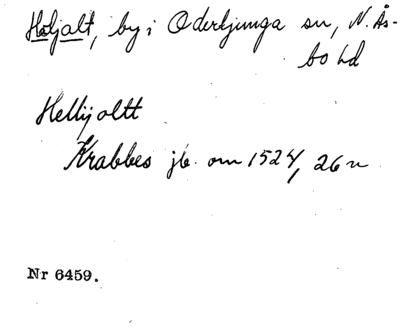 Höljalt, by i Oderljunga sn, N. Ås-
bo hd
Hellijoltt
Krabbes jb. om 1524, 26 n
Nr 6459.